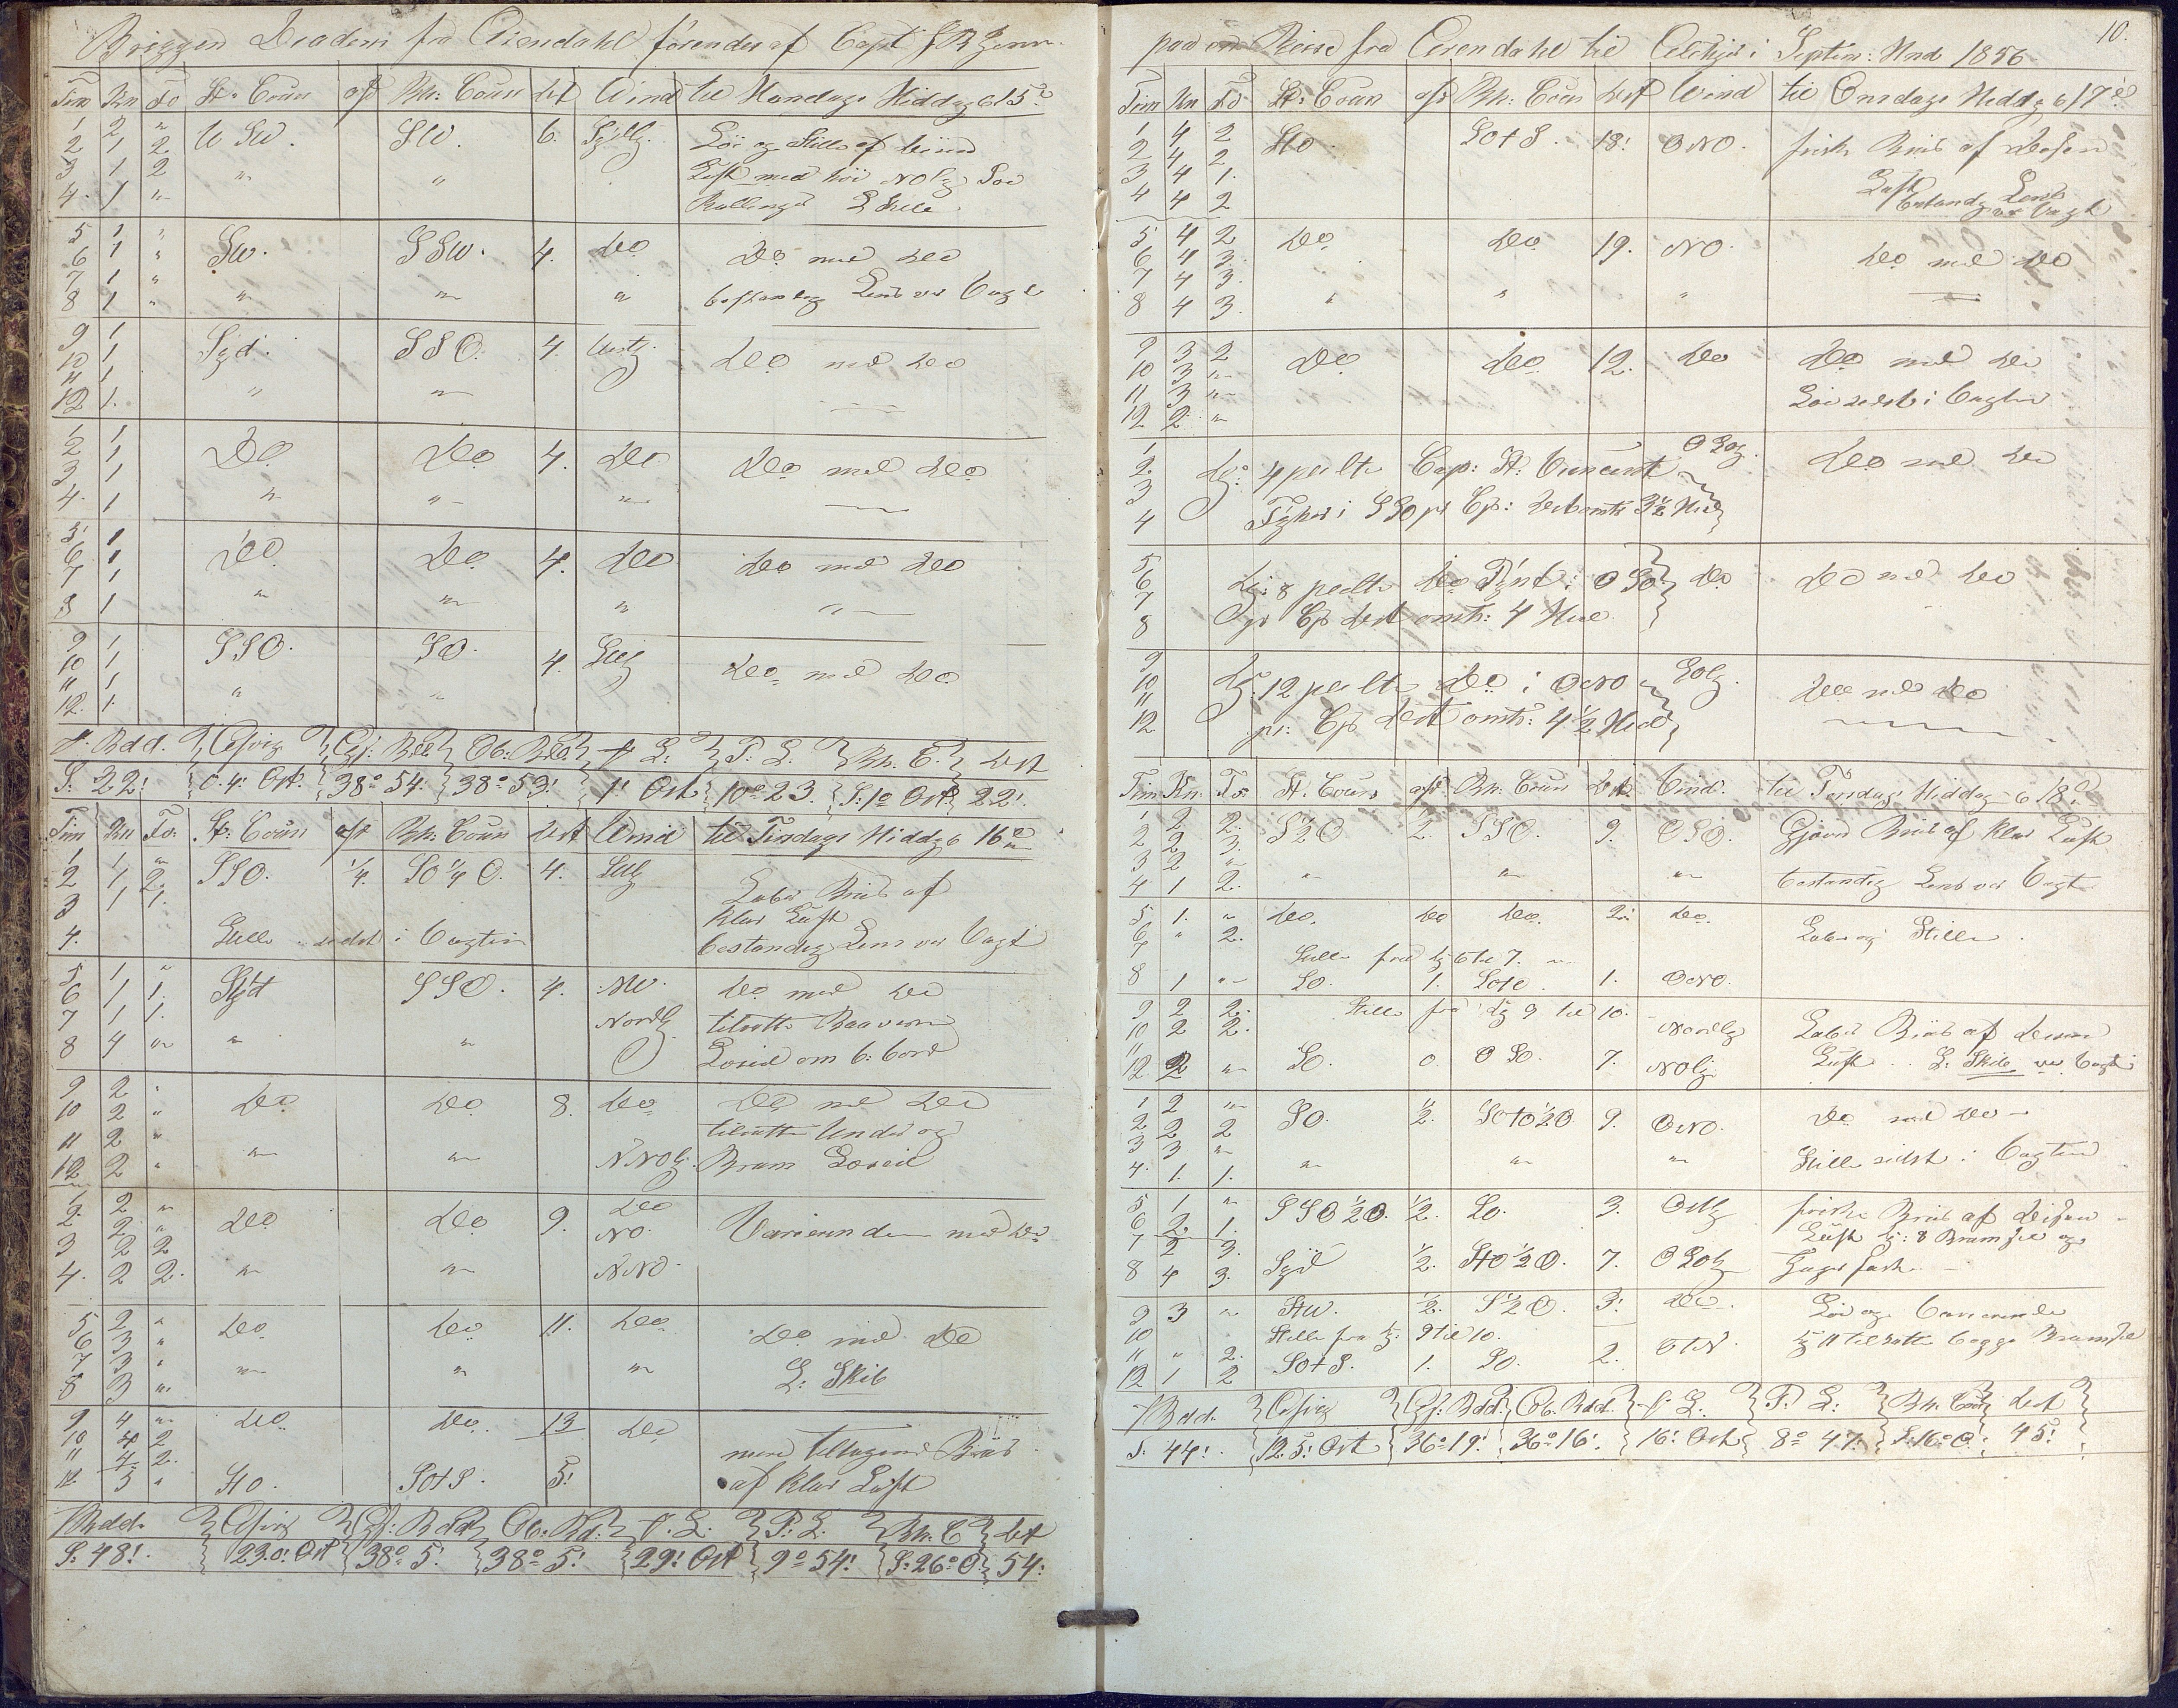 Briggen Diadem fra Arendahl förendes af Capt
Tim Kn Fo St: Cours afd Rh: Cours Dist Wind til Mandags Middag d 15de
1 2 "
2 1 2 W SW. SW. 6. Sydlg. Löi og Stille af
3 1 2 " " Luft med höi NOlg Söe
4. 1 " Rullinger
5 1 "
6 1 " SW. SSW. 4. do do med do
7 1 "
8 1 " " " " bestandig Lens ved Vagt
9 1
10 1 Syd. SSO. 4. Vestlg. do med do
11 1
12 1. " "
1 1
2 1 do do 4. do do med do
3 1
4. 1 " " "
5 1
6 1 do do 4. do do med do
7 1
8 1 " " "
9 1
10 1 SSO. SO. 4. do med do
11 1
12. 1. " "
f. Bdd. Afvig Gj: Bdd Ob: Bdd f L: P. L. Rh. C. Dist
S. 22! 0.4! Ost. 38° 54. 38° 53! 1! Ost 10° 23. S: 1° Ost 22!
Tim Kn Fo. St: Cours afd Rh: Cours Dist Wind til Tirsdags Middag d 16de
1 1 "
2 1 2. SSO. 1/4. SO 1/4 O. 4. Laber Briis af
3 1 1. klar Luft
4. Stille sidst i Vagten bestandig Lens ved Vagt
5 1 "
6 1 1. Syd SSO. 4. NW. do med do
7 1 1. Nordlg tilsatte
8 4 " " " Löseil om b: bord
9 2 "
10 2 " do do 8. do do med do
11 2 " tilsatte Under og
12 2 " " " NNOlg. Bram Löseil
1 2 " do
2 2 " do do 9. NO. Varierende med do
3 2 2
4. 2 2. " " NNO.
5 2 "
6 3 " do do 11. do do med do
7 3 "
8 3 " " " " L: Skib
9 4 " do do 13 do
10 4 2 med Tiltagende Briis
11 4 2.
12. 5 " StO. SOtS. 5! af klar Luft
f Bdd. Afvig Gj: Bdd Ob: Bd: f. L: P: L. Rh. C Dist
S. 48! 23.0! Ost 38° 5! 38° 5! 29! Ost 9° 54! S: 26° O. 54!
10.
paa en Reise fra Arendahl til i Septem: Mnd 1856
Tim Kn Fo St: Cours afd Rh: Cours Dist Wind til Onsdags Middag d 17de
1 4 2
2 4 2 StO. SOtS. 18! ONO. frisk Briis af
3 4 1. Luft
4 4 2 bestandig Lens ved Vagt
5 4 2
6 4 3. do do 19. NO. do med do
7 4 3.
8 4 3. " " "
9 3 2
10 3 " do do 12. do do med do
11 3 "
12 2 " Löi sidst i Vagten
1
2. kl: 4 peilte Cap: St: Vincent OSOlg. do med do
3
4 i SSO pr Cps: Dist omtr 3 1/2 Miil
5
6 kl: 8 peilte do i OSO do do med do
7
8 pr Cps Dist omtr: 4 Miil
9
10 kl. 12 peilte do i ONO SOlg. do med do
11
12 pr: Cps Dist omtr: 4 1/2 Miil
Tim Kn. Fo St. Cours afd. Rh. Cours Dist. Vind. til Torsdags Middag d 18de
1 2 2.
2 2 3. S 1/2 O 1/2. SSO. 9. OSO. Gjævn Briis af klar Luft
3 2 "
4 1 2. " " " bestandig Lens ved Vagt
5 1. " do. do do. 2. do.
6 " 2. Laber og Stille.
7 Stille fra kl 6 til 7.
8 1 " SO. 1. SOtO. 1. ONO.
9 2 2. Stille fra kl 9 til 10.
10 2 2. Nordlg Laber Briis af
11
12 2 " SO. 0 OSO. 7. NOlg. Luft. L: Skib ved Vagt
1 2 "
2 2 2 SO. 1/2. SOtO 1/2 O 9. ONO. do med do
3 3 "
4. 1. 1. " " " Stille sidst i Vagten
5 1 "
6 2. 1. SSO 1/2 O. 1/2. SO. 3. Ostlg friske Briis af
7 2 3. Luft kl: 8 Bramseil og
8 4 3. Syd 1/2. StO 1/2 O. 7. OSOlg fast.
9 3 " StW. 1/2. S 1/2 O. 3! do. Löi og Varierende
10 Stille fra kl: 9 til 10.
11 " 2. OtN. kl 11 tilsatte begge Bramseil
12 1 2 SOtS. 1. SO. 2.
f Bdd. Afvig Gj: Bdd. Ob. Bdd. f L. P. L. Rh. Cours Dist
S. 44! 12.5! Ost 36° 19! 36° 16! 16! Ost 8° 47! S: 16° O. 45!